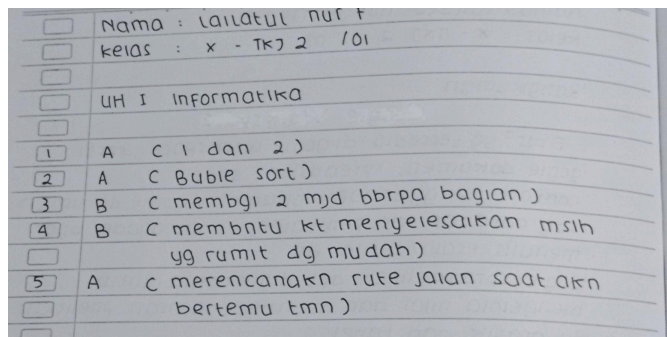 Nama : Lailatul nur F
kelas : X - TKJ 2 / 01
UH I Informatika
1 A ( 1 dan 2 )
2 A ( Buble sort )
3 B ( membgi 2 mjd bbrpa bagian )
4 B ( membntu kt menyelesaikan mslh
yg rumit dg mudah )
5 A ( merencanakn rute jalan saat akn
bertemu tmn )